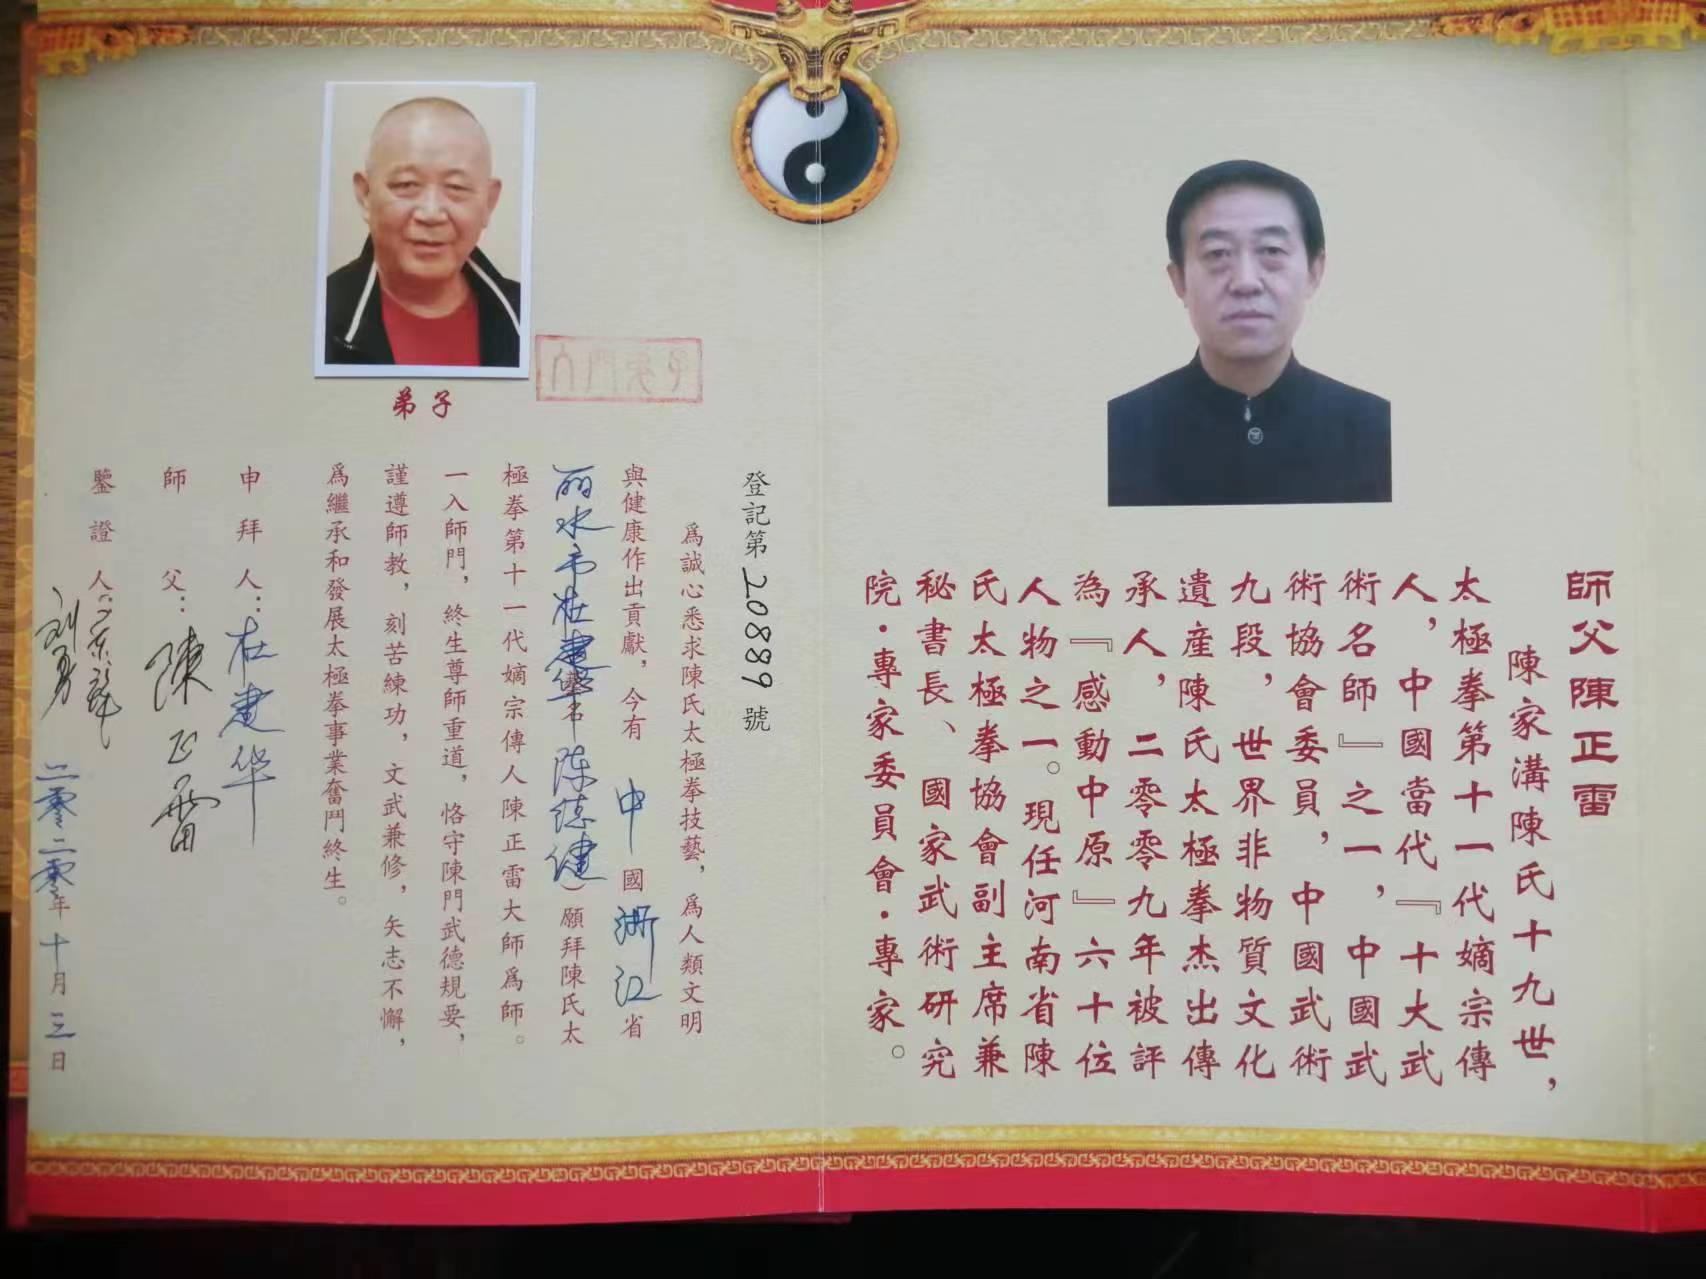 師父陳正雷
陳家溝陳氏十九世，
太極拳第十一代嫡宗傳
人，中國當代『十大武
術名師』之一，中國武
術協會委員，中國武術
九段，世界非物質文化
遺産陳氏太極拳杰出傳
承人，二零零九年被評
為『感動中原』六十位
人物之一。現任河南省陳
氏太極拳協會副主席兼
秘書長、國家武術研究
院·專家委員會·專家。
弟子
登記第20889號
爲誠心悉求陳氏太極拳技藝，爲人類文明
與健康作出貢獻，今有中國浙江省
丽水市杜建华名陈德健）願拜陳氏太
極拳第十一代嫡宗傳人陳正雷大師爲師。
一入師門，終生尊師重道，恪守陳門武德規要，
謹遵師教，刻苦練功，文武兼修，矢志不懈，
爲繼承和發展太極拳事業奮鬥終生。
申拜人：杜建华
師父：陳正雷
鑒證人：
刘勇
二零二零年十月三日